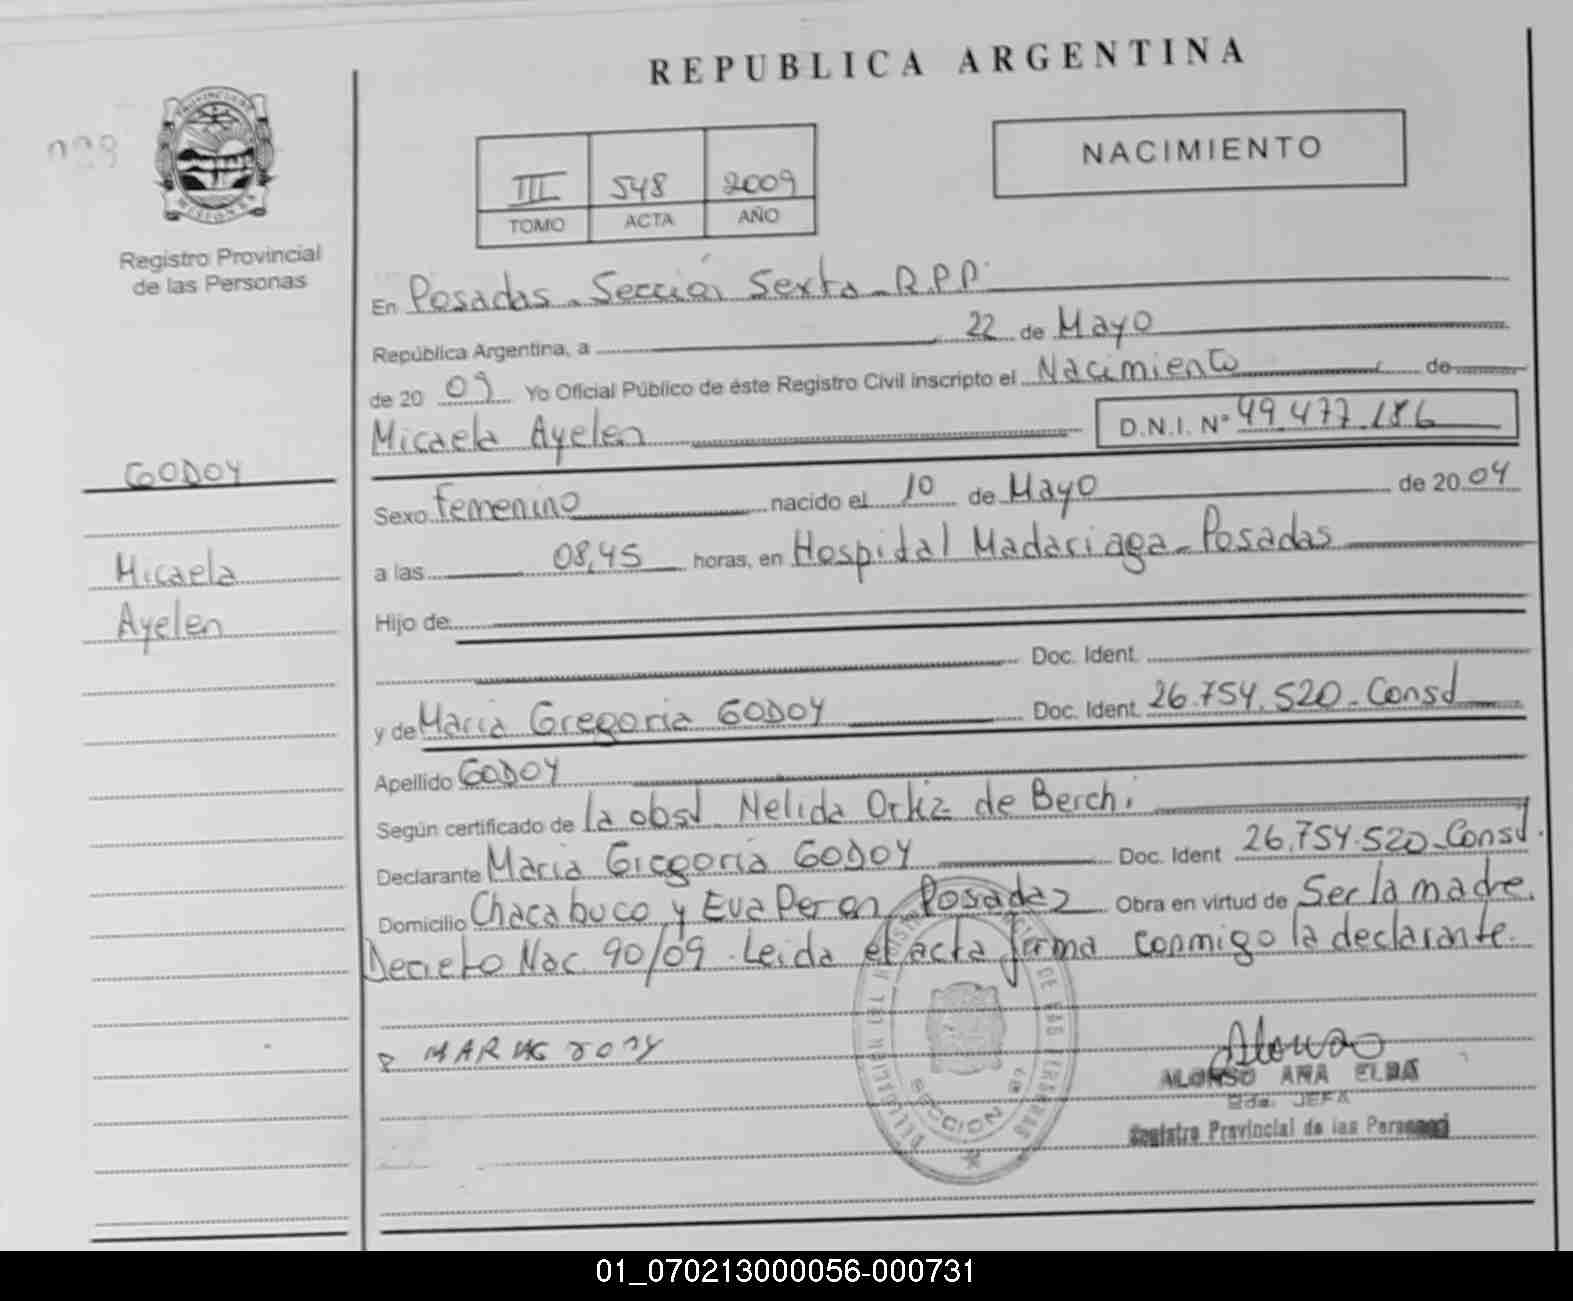 REPUBLICA ARGENTINA
029
PROVINCIA DE MISIONES
Registro Provincial
de las Personas
III 548 2009
TOMO ACTA AÑO
NACIMIENTO
En Posadas - Sección Sexta - R.P.P.
República Argentina, a 22 de Mayo
de 20 09 Yo Oficial Público de éste Registro Civil inscripto el Nacimiento de
Micaela Ayelen D.N.I. Nº 49.477.186
GODOY
Sexo Femenino nacido el 10 de Mayo de 20 04
Micaela
a las 08,45 horas, en Hospital Madariaga - Posadas
Ayelen
Hijo de
Doc. Ident.
y de Maria Gregoria GODOY Doc. Ident. 26.754.520 - Consd
Apellido GODOY
Según certificado de la obst. Nelida Ortiz de Berchi
Declarante Maria Gregoria GODOY Doc. Ident 26.754.520 - Consd.
Domicilio Chacabuco y Eva Peron Posadas Obra en virtud de Ser la madre.
Decreto Nac. 90/09. Leida el acta firma conmigo la declarante.
ALONSO ANA ELBA
2da. JEFA
Registro Provincial de las Personas
SECCION 6ª
01_070213000056-000731